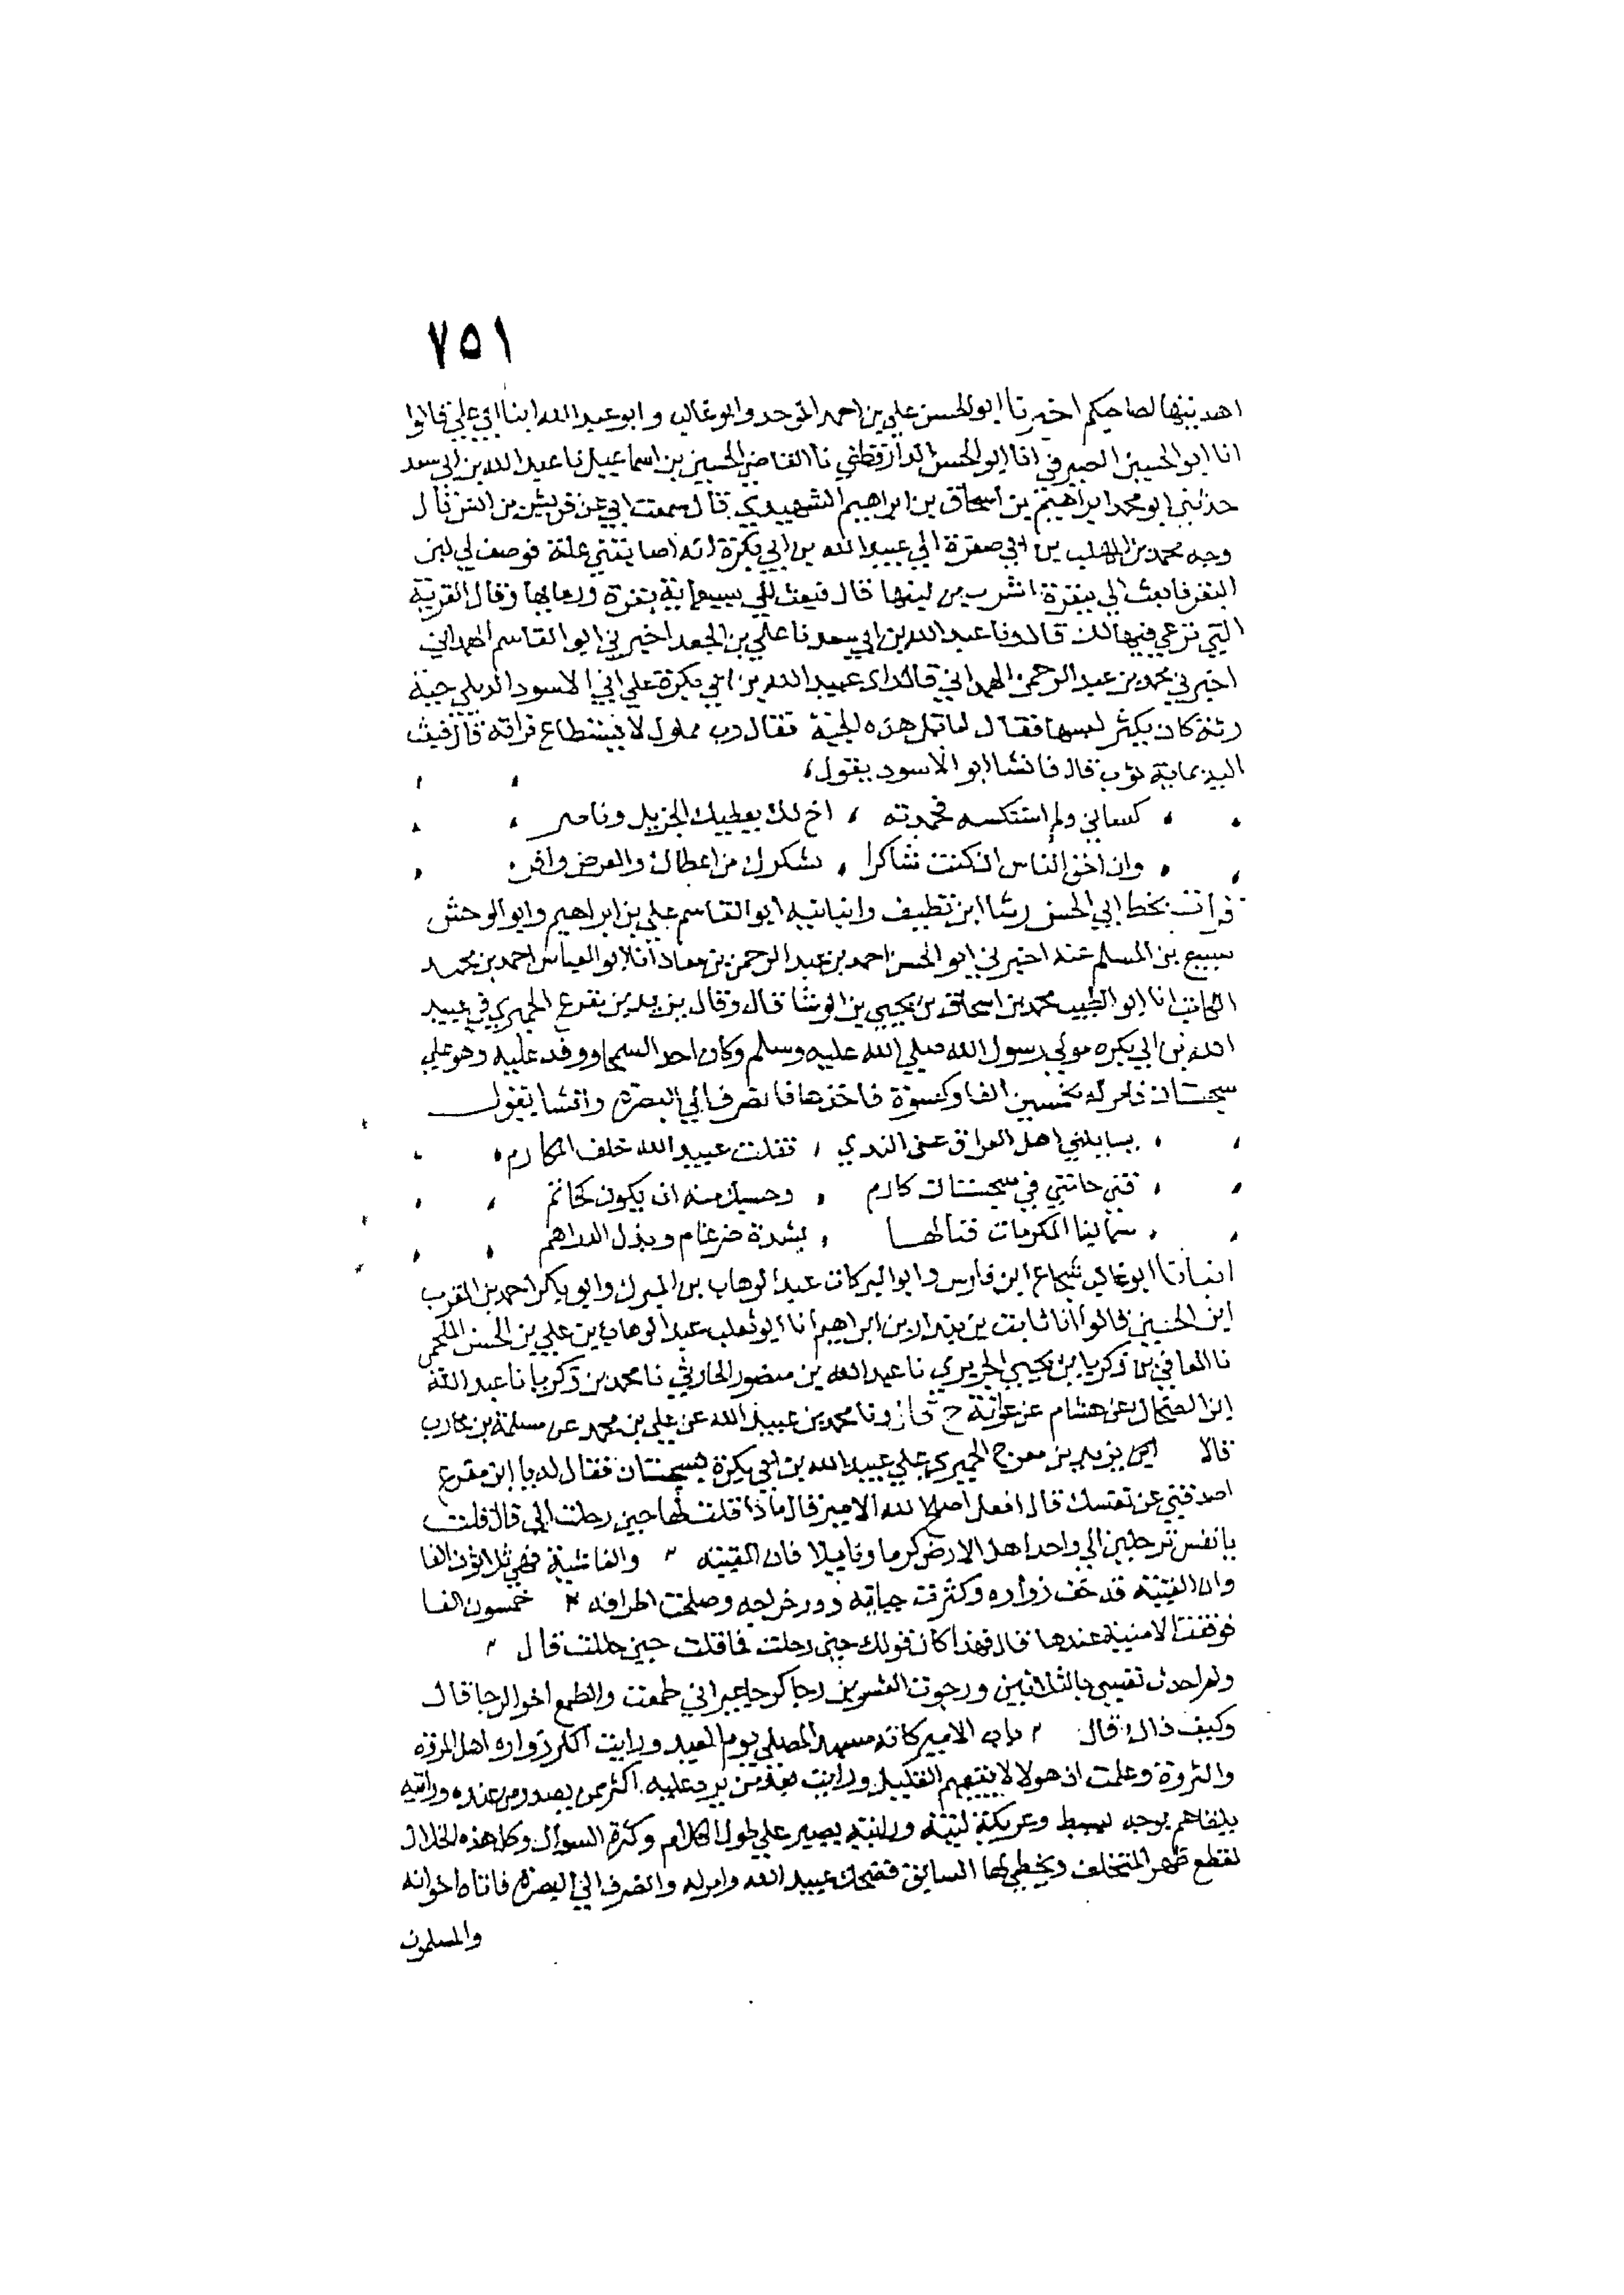 ٧٥١
اهديتها لصاحبكم اخبرنا ابو الحسن علي بن احمد الموحد وابو غالب وابو عبد الله ابنا ابي علي قالوا
انا ابو الحسين الصيرفي انا ابو الحسن الدارقطني نا القاضي الحسين بن اسماعيل نا عبد الله بن ابي سعد
حدثني ابو محمد ابراهيم بن اسحاق بن ابراهيم الشهيدي قال سمعت ابي عن قريش بن انس قال
وجه محمد بن المهلب بن ابي صفرة الي عبيد الله بن ابي بكرة انه اصابتني علة فوصف لي لبن
البقر فابعث الي ببقرة اشرب من لبنها قال فبعث الي بسبعماية بقرة ورعايها وقال القرية
التي ترعي فيها لك قال ونا عبد الله بن ابي سعد نا علي بن الجعد اخبرني ابو القاسم الهمداني
اخبرني محمد بن عبد الرحمن الهمداني قال راى عبيد الله بن ابي بكرة علي ابي الاسود الديلي جبة
رثة كان يكثر لبسها فقال اما تمل هذه الجبة فقال رب مملول لا يستطاع فراقه قال فبعث
اليه بماية ثوب قال فانشا ابو الاسود يقول
كساني ولم استكسه فحمدته ، اخ لك يعطيك الجزيل وناصر
وان احق الناس ان كنت شاكرا ، بشكرك من اعطاك والعرض وافر
قرات بخط ابي الحسن رشا ابن نظيف وانبانيه ابو القاسم علي بن ابراهيم وابو الوحش
سبيع بن المسلم عنه اخبرني ابو الحسن احمد بن عبد الرحمن بن معاذ انا ابو العباس احمد بن محمد
الكاتب انا ابو الطيب محمد بن اسحاق بن يحيي بن الوشا قال وقال يزيد بن مفرع الحميري في عبيد
الله بن ابي بكره مولي رسول الله صلي الله عليه وسلم وكان احد السمحا ووفد عليه وهو علي
سجستان فامر له بخمسين الفا وكسوة فاخذها فانصرف الي البصرة وانشا يقول
يسايلني اهل العراق عن الندي ، فقلت عبيد الله حلف المكارم
فتي حاتمي في سجستان ، وحسبك منه ان يكون كحاتم
سما لينا المكرمات فنالها ، بشدة ضرغام وبذل الدراهم
انبانا ابو غالب شجاع ابن فارس وابو البركات عبد الوهاب بن المبرك وابو بكر احمد بن المقرب
ابن الحسين قالوا انا ثابت بن بندار بن ابراهيم انا ابو تغلب عبد الوهاب بن علي بن الحسن الملحمي
نا المعافي بن زكريا بن يحيي الجريري نا عبد الله بن منصور الحارثي نا محمد بن زكريا نا عبد الله
ابن الضحاك عن هشام عن عوانة ح قال ونا محمد بن عبيد الله عن علي بن محمد عن مسلمة بن محارب
قالا اتي يزيد بن مفرع الحميري علي عبيد الله بن ابي بكرة بسجستان فقال له يا ابن مفرع
اصدقني عن نفسك قال افعل اصلح الله الامير قال ماذا قلت لها حين رحلت الي قال قلت
يا نفس ترحلين الي واحد اهل الارض كرما ونايلا فان الفيته والغاشية فهي ثلاثون الفا
وان الفيته قد خف زواره وكثرت جبايته ودر خراجه وصلحت اطرافه خمسون الفا
فوقفت الامنية عندها قال فهذا كان قولك حين رحلت فما قلت حين حللت قال
ولم احدث نفسي بالثلاثين ورجوت الخمسين رجا كرجا غير اني طمعت والطمع اخو الرجا قال
وكيف ذاك قال باب الامير كانه مشهد المصلي يوم العيد ورايت اكثر زواره اهل المروة
والثروة وعلمت ان هولا لا يتبعهم القليل ورايت بعد من يرد عليه اكثر ممن يصدر من عنده ورايته
يلقاهم بوجه بسيط وعريكة لينة ورايته يصبر علي طول الكلام وكثرة السوال وكل هذه الخلال
تقطع ظهر المتخلف ويخطي لها السابق فضحك عبيد الله وامر له وانصرف الي البصرة فاتاه اخوانه
والمسلمون